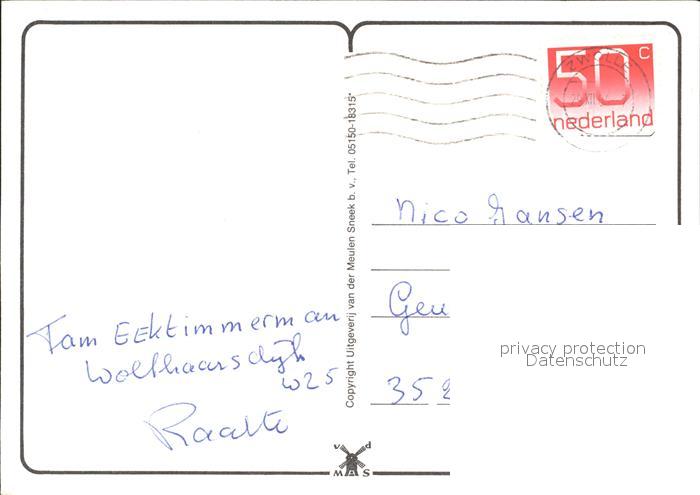 ZWOLLE
50 c
nederland
Copyright Uitgeverij van der Meulen Sneek b. v., Tel. 05150-18315*
Nico Jansen
Geu
35
privacy protection
Datenschutz
Fam Eektimmerman
Wolthaarsdijk
W25
Raalte
v d
MAS